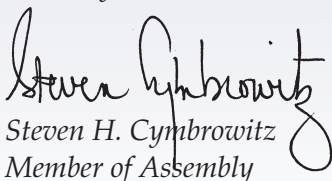 Steven Cymbrowitz
Steven H. Cymbrowitz
Member of Assembly